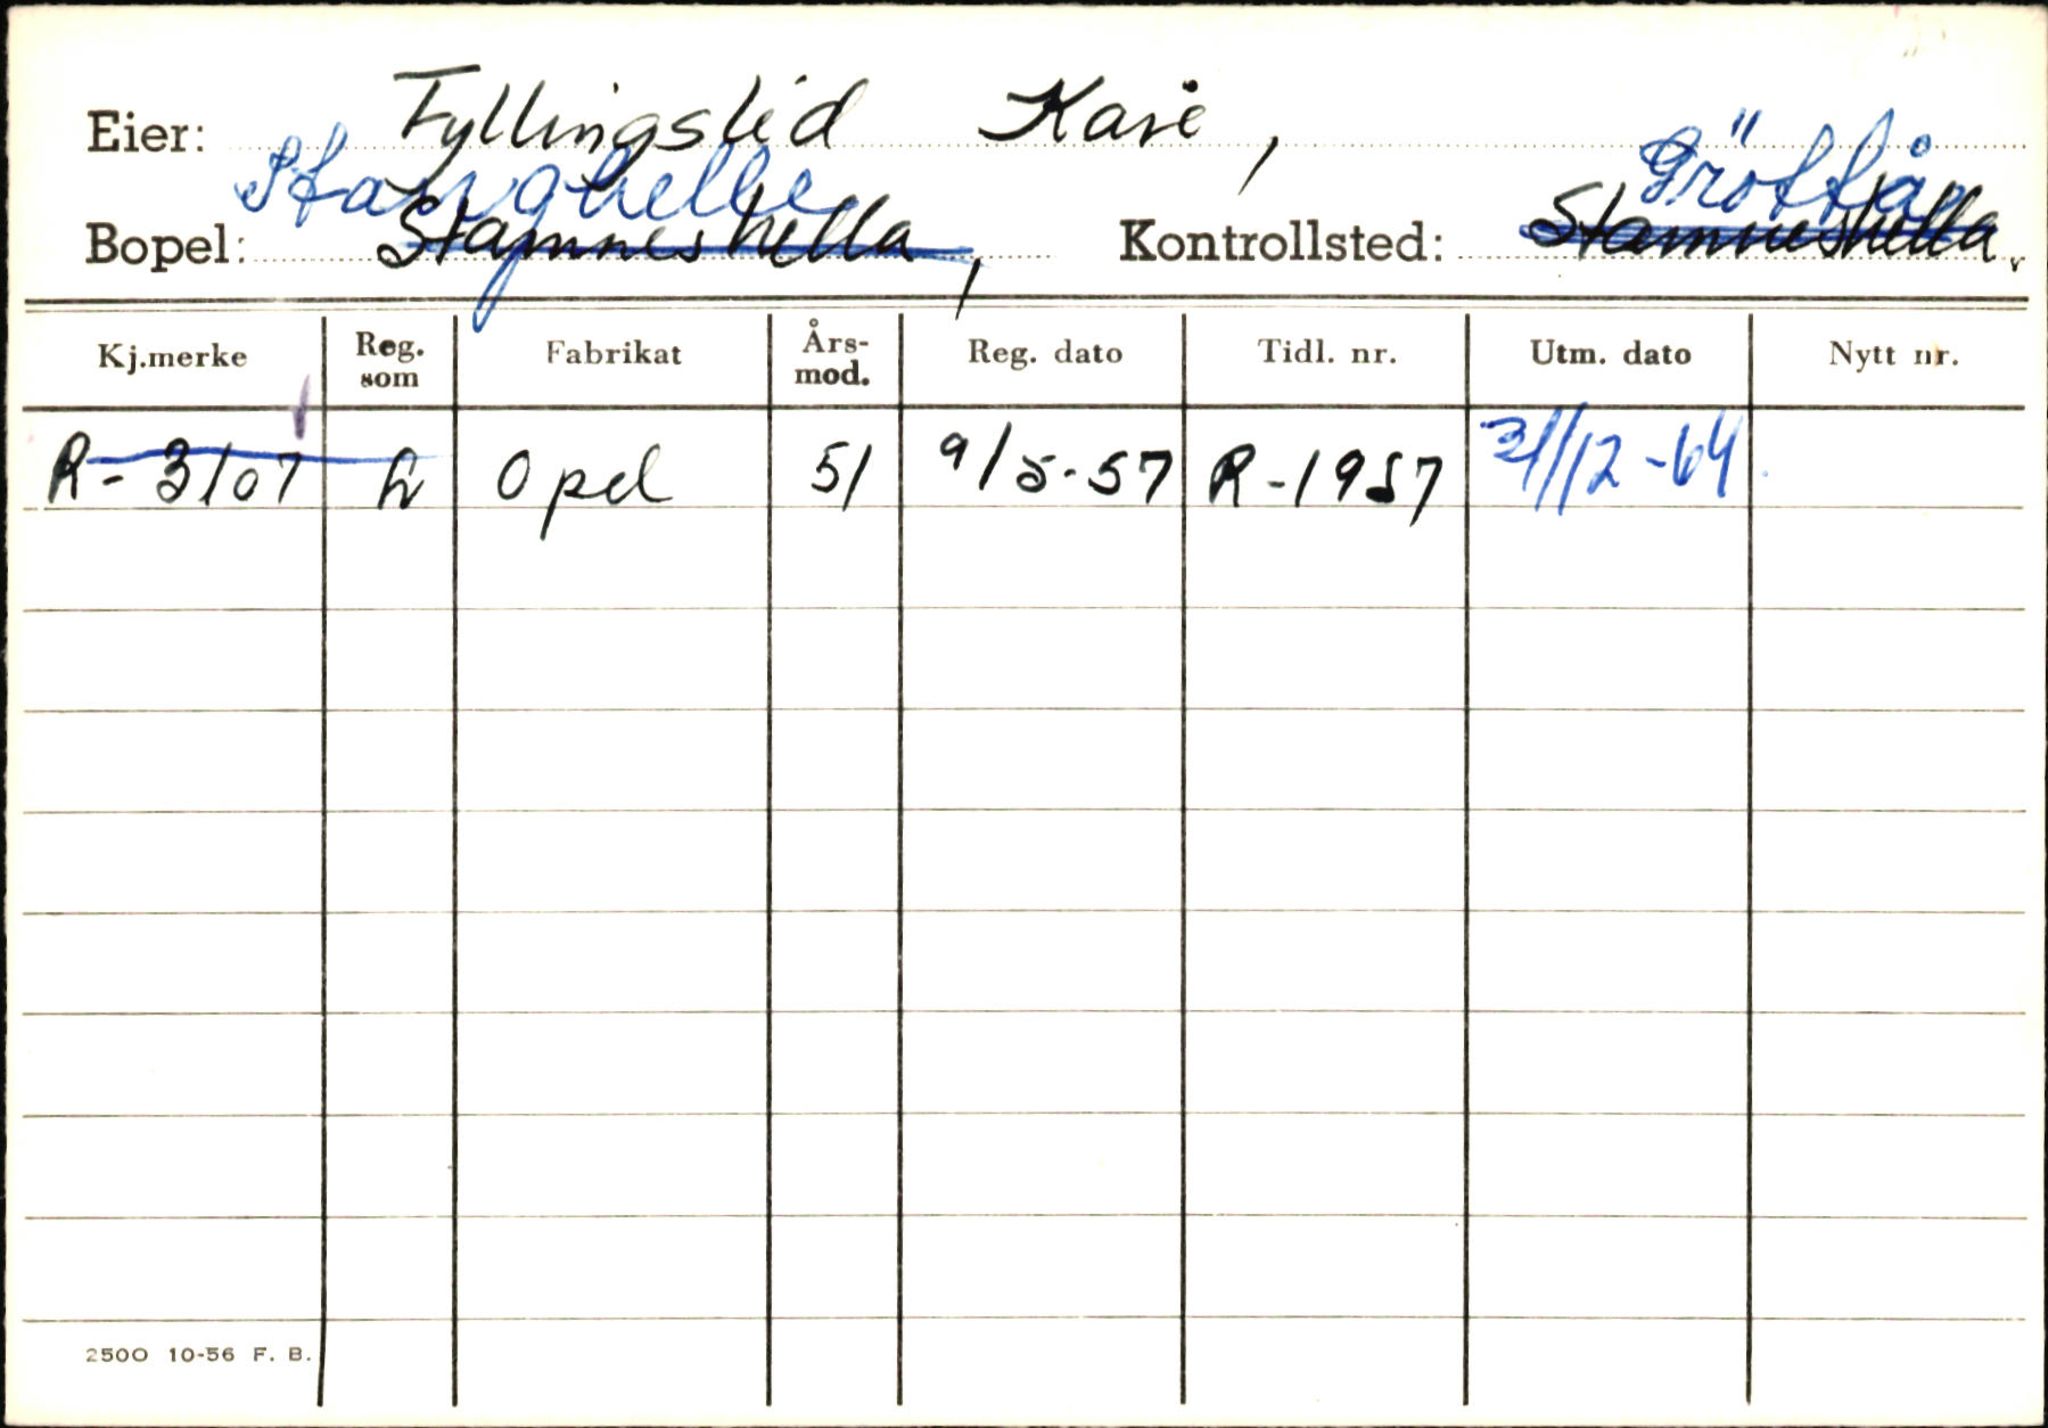 Eier: Fyllingslid Kåre,
Stanghelle Gröttån
Bopel: Stamneshella, Kontrollsted: Stamneshella.
Kj.merke Reg. som Fabrikat Års-mod. Reg. dato Tidl. nr. Utm. dato Nytt nr.
R-3107 L Opel 51 9/5-57 R-1957 31/12-64
2500 10-56 F. B.